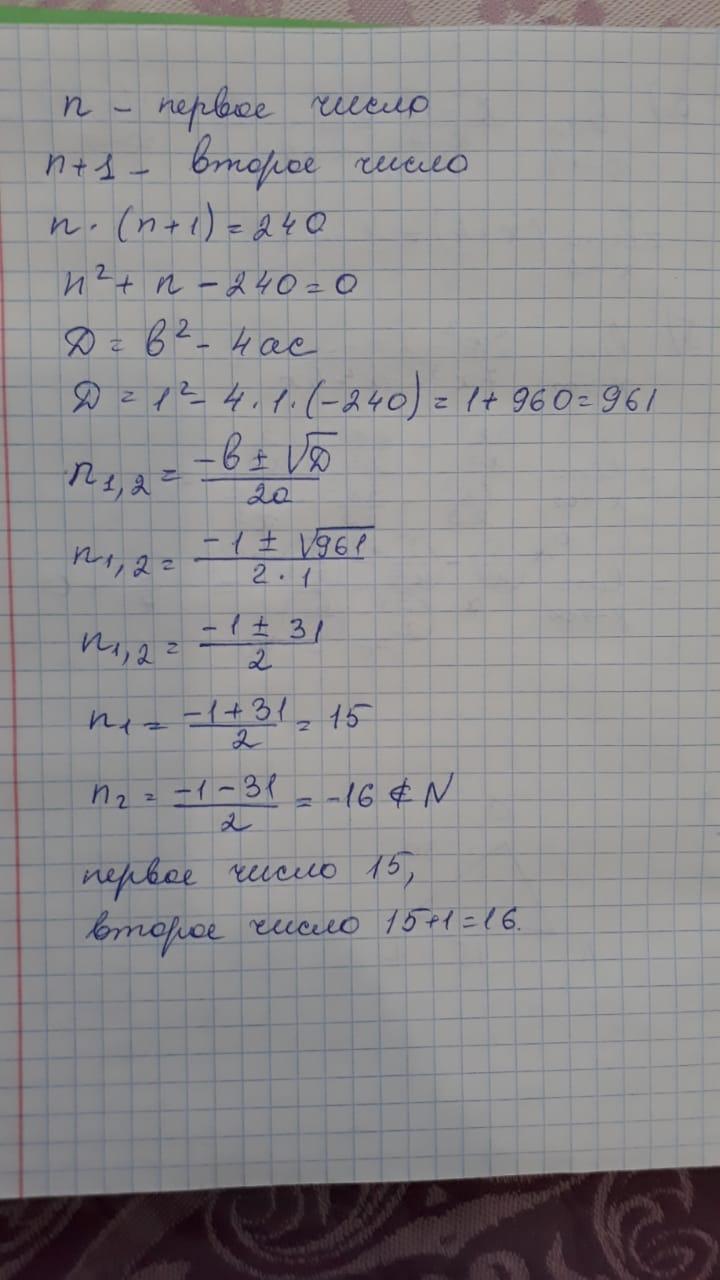 n – первое число
n+1 – второе число
n · (n+1) = 240
n² + n – 240 = 0
Д = в² – 4ас
Д = 1² – 4 · 1 · (–240) = 1 + 960 = 961
n₁,₂ = (–в ± √Д) / 2а
n₁,₂ = (–1 ± √961) / 2 · 1
n₁,₂ = (–1 ± 31) / 2
n₁ = (–1 + 31) / 2 = 15
n₂ = (–1 – 31) / 2 = –16 ∉ N
первое число 15,
второе число 15+1=16.